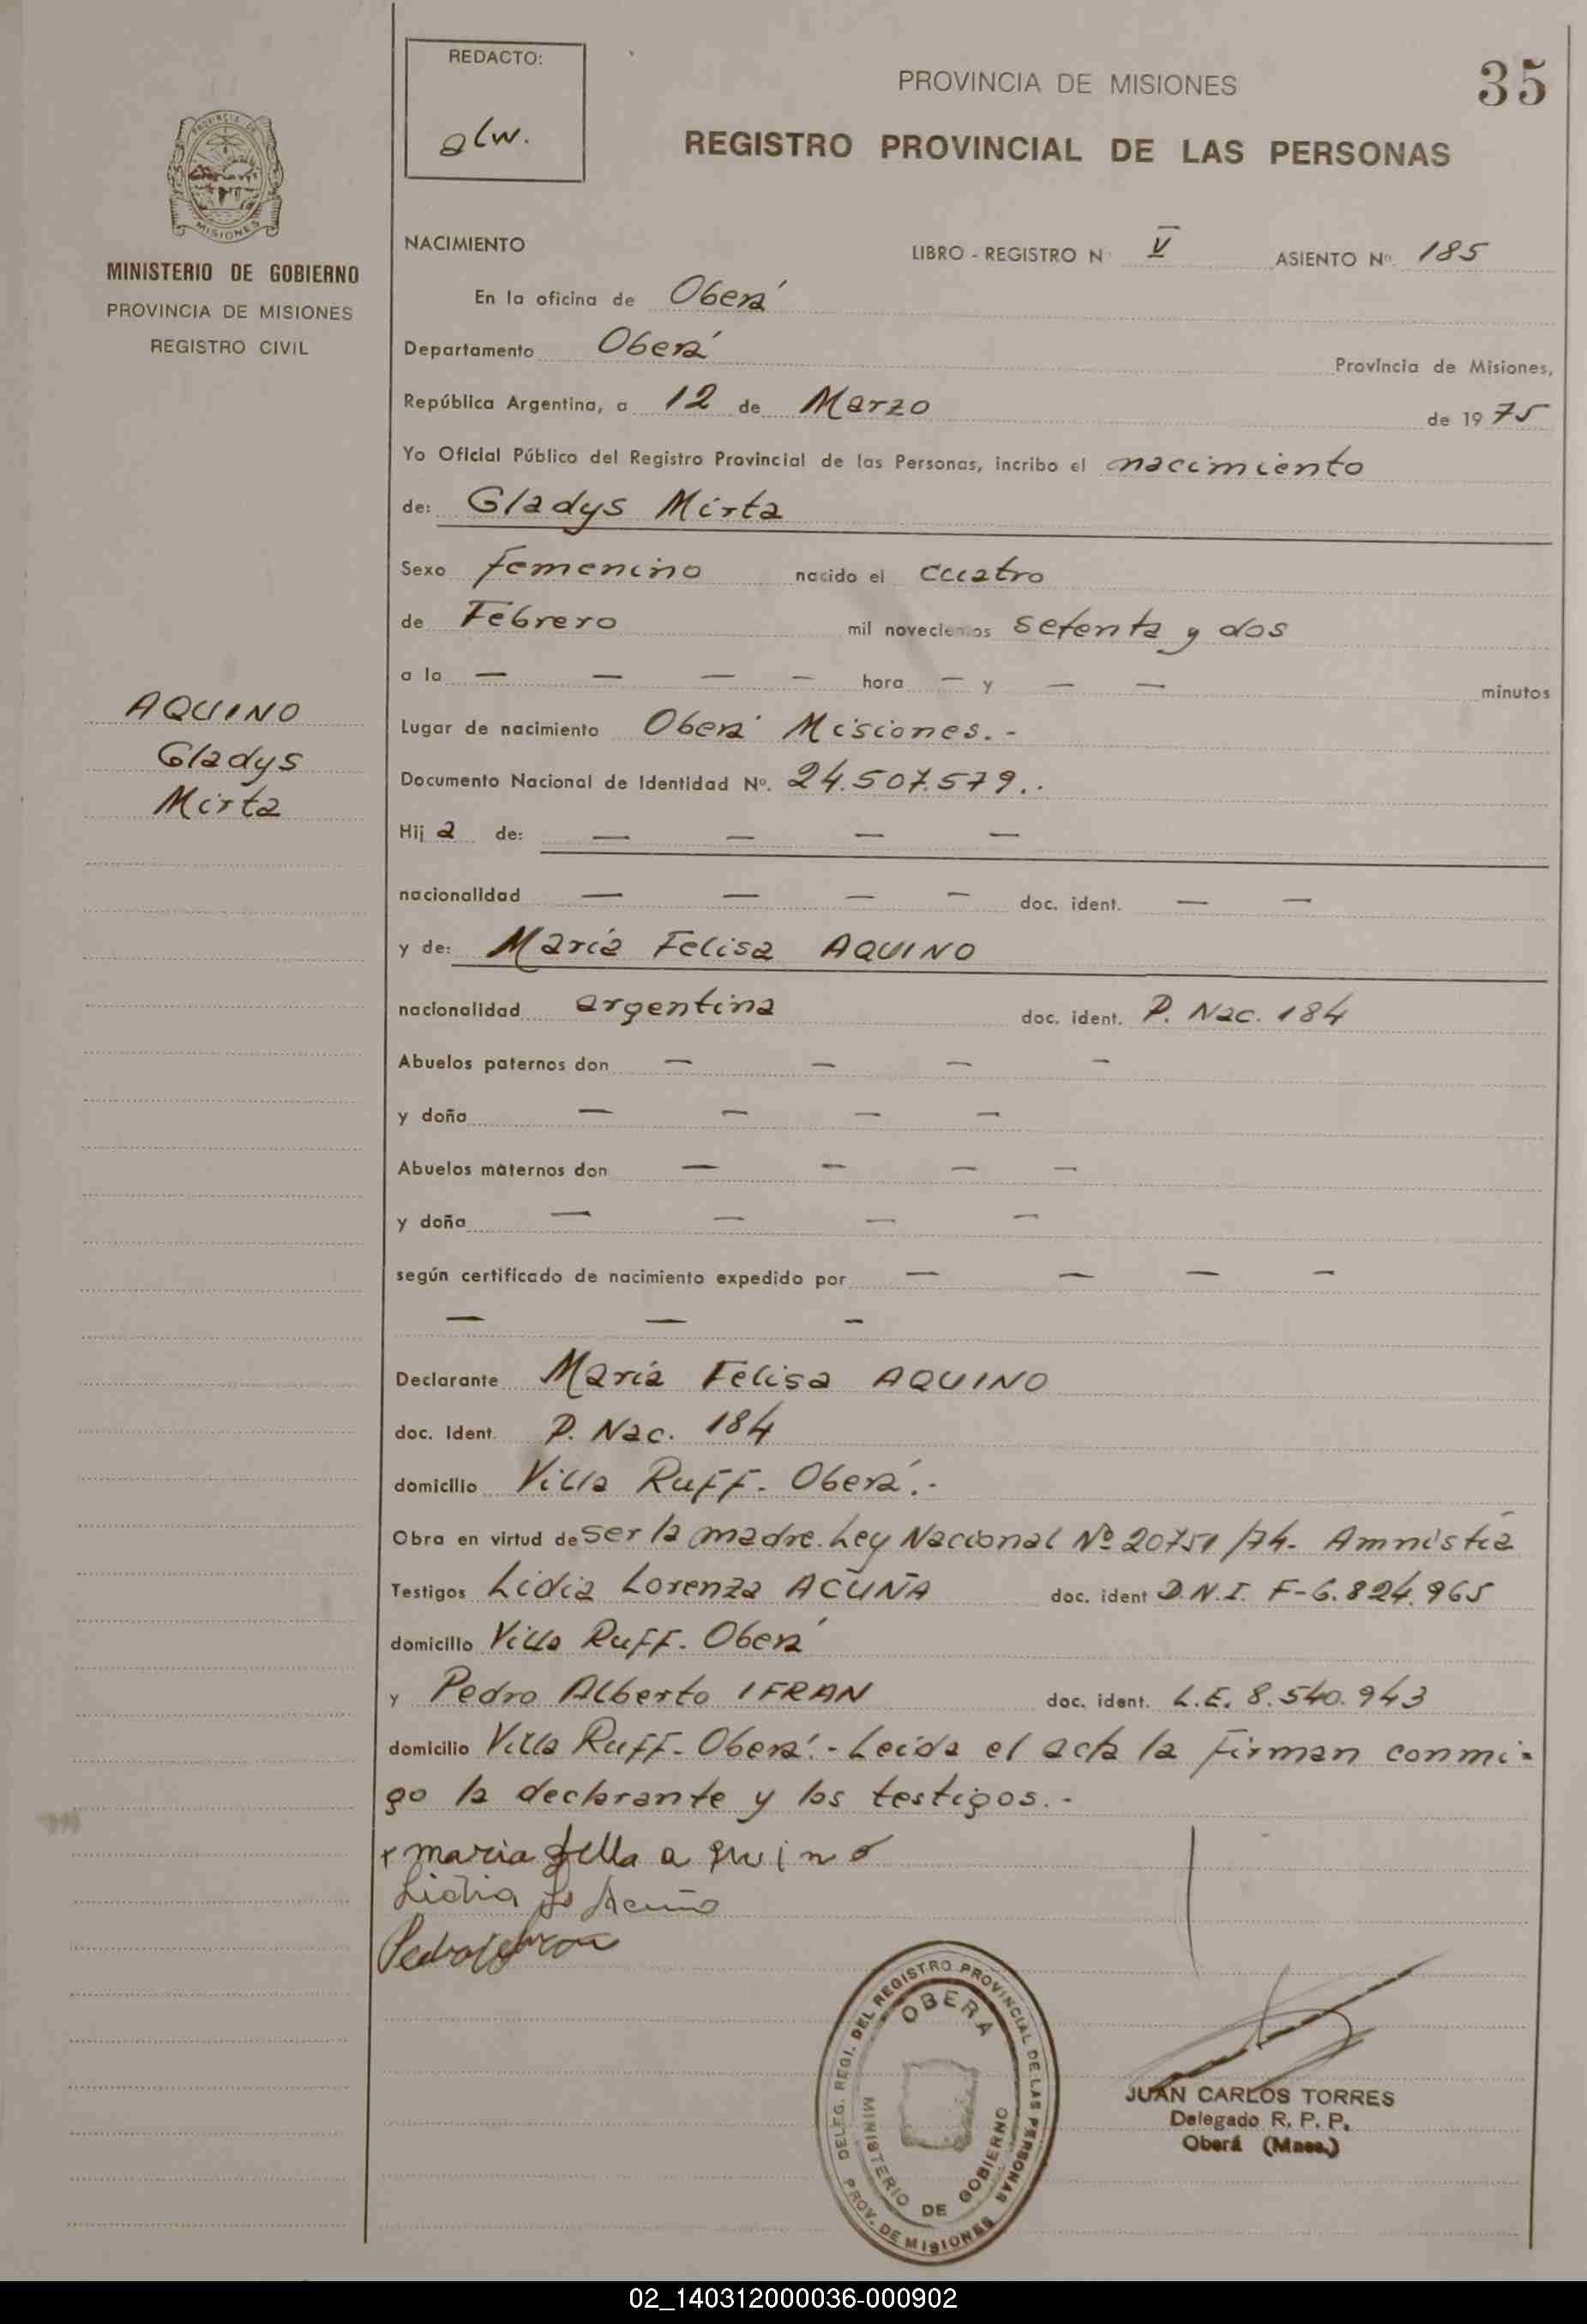 REDACTO:
alw.
PROVINCIA DE MISIONES
35
REGISTRO PROVINCIAL DE LAS PERSONAS
PROVINCIA DE
MISIONES
MINISTERIO DE GOBIERNO
PROVINCIA DE MISIONES
REGISTRO CIVIL
NACIMIENTO LIBRO - REGISTRO N° V ASIENTO Nº. 185
En la oficina de Oberá
Departamento Oberá Provincia de Misiones,
República Argentina, a 12 de Marzo de 1975
Yo Oficial Público del Registro Provincial de las Personas, incribo el nacimiento
de: Gladys Mirta
Sexo femenino nacido el cuatro
de Febrero mil novecientos setenta y dos
a la — — — — hora — y — — minutos
AQUINO
Gladys
Mirta
Lugar de nacimiento Oberá Misiones.-
Documento Nacional de Identidad Nº. 24.507.579..
Hij a de: — — — —
nacionalidad — — — — doc. ident. — —
y de: María Felisa AQUINO
nacionalidad argentina doc. ident. P. Nac. 184
Abuelos paternos don — — — —
y doña — — — —
Abuelos maternos don — — — —
y doña — — — —
según certificado de nacimiento expedido por — — — —
— — —
Declarante María Felisa AQUINO
doc. Ident. P. Nac. 184
domicilio Villa Ruff. Oberá.-
Obra en virtud de ser la madre. Ley Nacional Nº 20751/74- Amnistía
Testigos Lidia Lorenza ACUÑA doc. ident D.N.I. F-6.824.965
domicilio Villa Ruff. Oberá
y Pedro Alberto IFRAN doc. ident. L.E. 8.540.943
domicilio Villa Ruff- Oberá.- Leída el acta la firman conmi-
go la declarante y los testigos.-
x maria fella aquino
Lidia Lo Acuña
DELEG. REGI. DEL REGISTRO PROVINCIAL DE LAS PERSONAS
OBERA
MINISTERIO DE GOBIERNO
PROV. DE MISIONES
JUAN CARLOS TORRES
Delegado R. P. P.
Oberá (Mnes.)
02_140312000036-000902